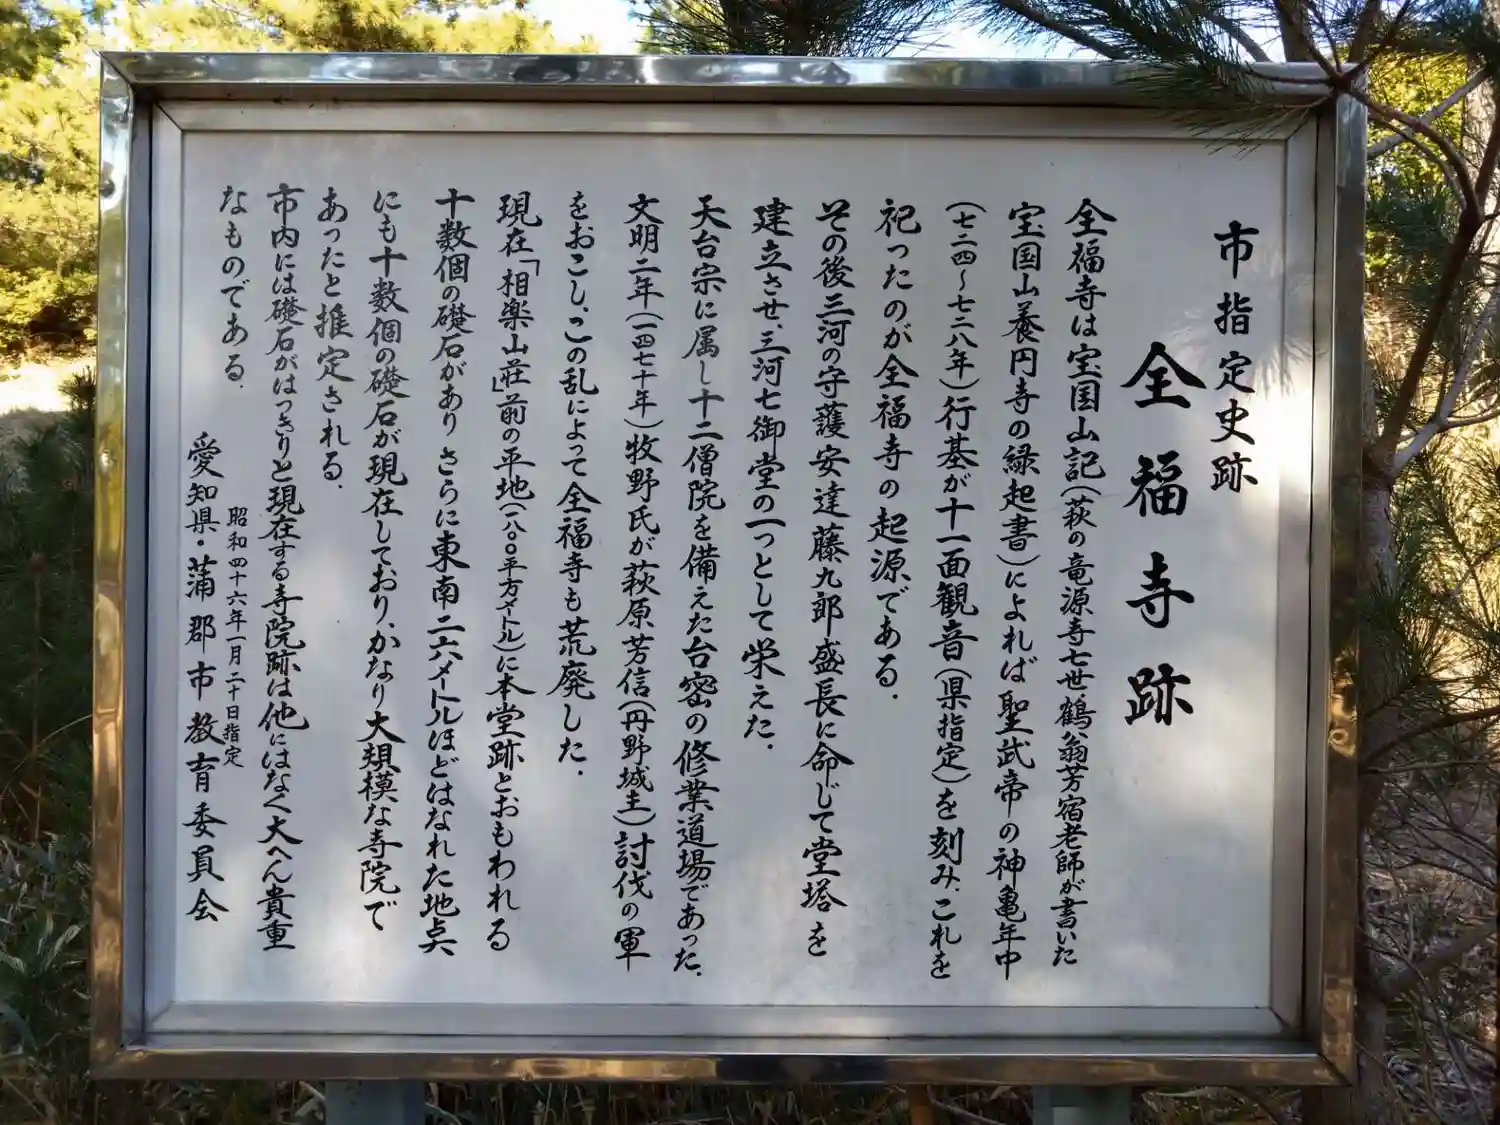 市指定史跡
全福寺跡
全福寺は宝国山記(萩の竜源寺七世鶴翁芳宿老師が書いた
宝国山養円寺の緑起書)によれば聖武帝の神亀年中
(七二四〜七二八年)行基が十一面観音(県指定)を刻み、これを
祀ったのが全福寺の起源である.
その後三河の守護安達藤九郎盛長に命じて堂塔を
建立させ、三河七御堂の一つとして栄えた.
天台宗に属し十二僧院を備えた台密の修業道場であった.
文明二年(一四七十年)牧野氏が萩原芳信(丹野城主)討伐の軍
をおこし、この乱によって全福寺も荒廃した.
現在「相楽山荘」前の平地(一八〇平方メートル)に本堂跡とおもわれる
十数個の礎石がありさらに東南二六メートルほどはなれた地点
にも十数個の礎石が現在しており、かなり大規模な寺院で
あったと推定される.
市内には礎石がはっきりと現在する寺院跡は他にはなく大へん貴重
なものである.
昭和四十六年一月二十日指定
愛知県・蒲郡市教育委員会